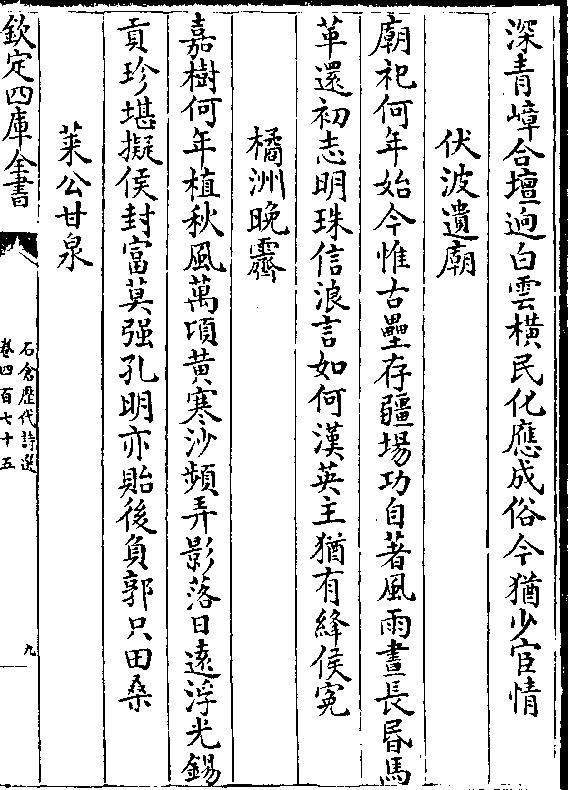 深青嶂合壇逈白雲橫民化應成俗今猶少宦情
伏波遺廟
廟祀何年始今惟古壘存疆場功自著風雨晝長昬馬
革還初志明珠信浪言如何漢英主猶有絳侯寃
橘洲晚霽
嘉樹何年植秋風萬頃黄寒沙頻弄影落日逺浮光錫
貢珍堪擬侯封富莫强孔明亦貽後負郭只田桑
萊公甘泉
欽定四庫全書
石倉歴代詩選
卷四百七十五
九